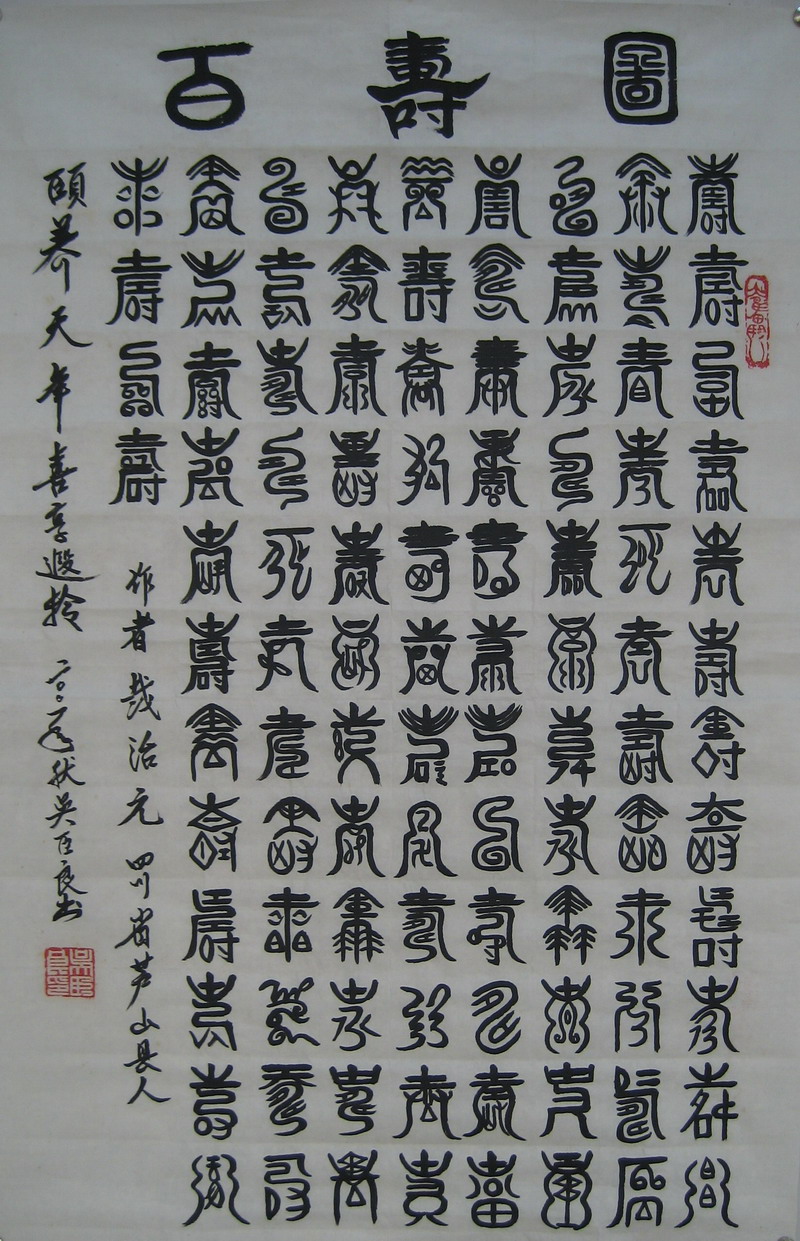 百壽圖
壽壽壽壽壽壽壽壽壽壽壽壽
壽壽壽壽壽壽壽壽壽壽壽壽
壽壽壽壽壽壽壽壽壽壽壽壽
壽壽壽壽壽壽壽壽壽壽壽壽
壽壽壽壽壽壽壽壽壽壽壽壽
壽壽壽壽壽壽壽壽壽壽壽壽
壽壽壽壽壽壽壽壽壽壽壽壽
壽壽壽壽壽壽壽壽壽壽壽壽
壽壽壽壽
作者 治元 四川省芦山县人
颐养天年喜享遐龄 秋吴良书